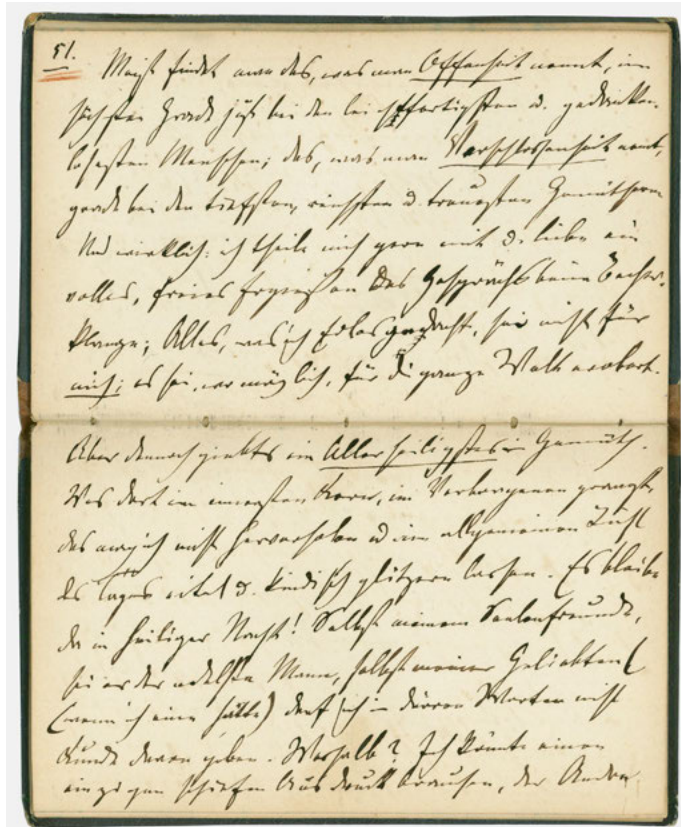 51.
Meist findet man das, was man Offenheit nennt, im
höchsten Grade just bei den leichtfertigsten u. gedanken-
losesten Menschen; das, was man Verschlossenheit nennt,
gerade bei den tiefsten, reinsten u. treuesten Gemüthern.
Und wirklich: ich theile mich gern mit u. liebe ein
volles, freies Ergießen des Gesprächs beim Becher-
klange; Alles, was ich Edles gedacht, sei nicht für
mich; es sei, wo möglich, für die ganze Welt erobert.
Aber dennoch giebt's ein Allerheiligstes im Gemüth.
Was dort im innersten Kern, im Verborgenen prangt,
das mag ich nicht hervorheben u. im allgemeinen Licht
des Tages eitel u. kindisch glitzern lassen. Es bleibe
da in heiliger Nacht! Selbst meinem Seelenfreunde,
sei er der edelste Mann, selbst meiner Geliebten
(wenn ich eine hätte) darf ich in dürren Worten nicht
Kunde davon geben. Weshalb? Ich könnte einen
einzigen schiefen Ausdruck brauchen, der Andre